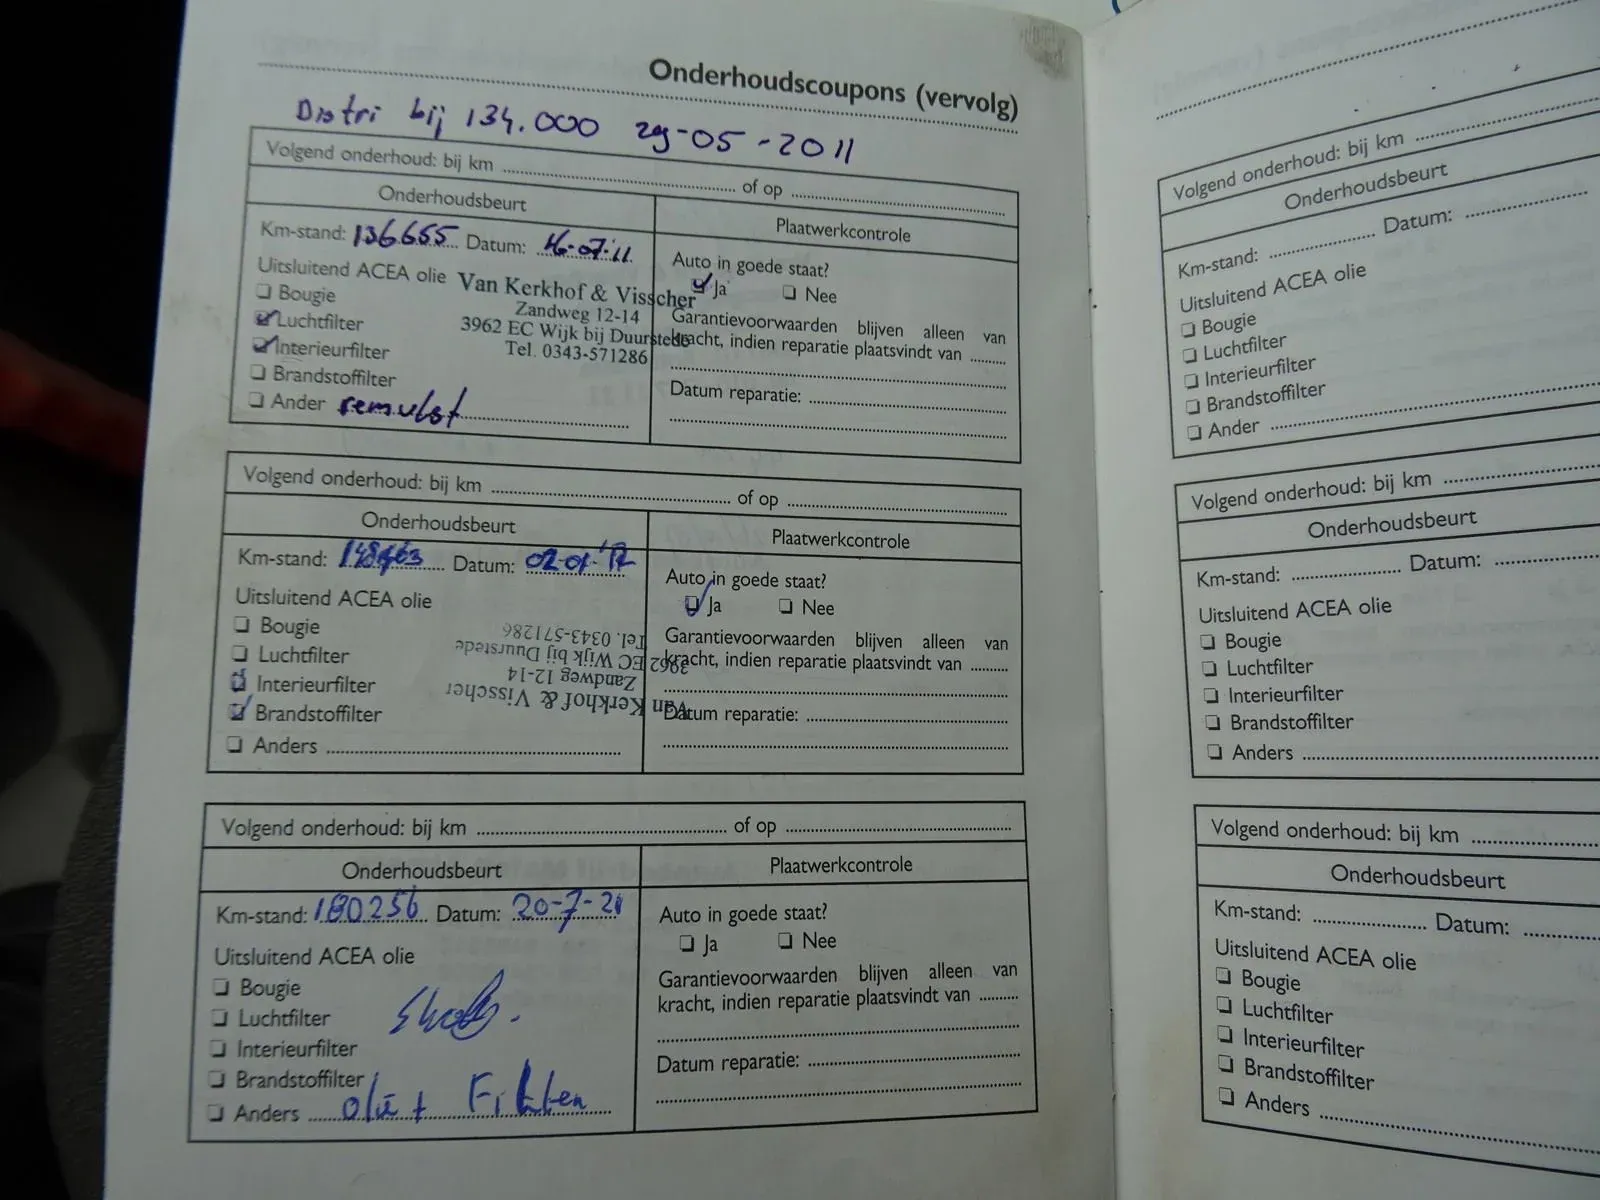 Onderhoudscoupons (vervolg)
Distri bij 134.000 29-05-2011
Volgend onderhoud: bij km .......... of op ..........
Onderhoudsbeurt
Plaatwerkcontrole
Km-stand: 136655 Datum: 16-07-'11
Uitsluitend ACEA olie
Bougie
Luchtfilter
Interieurfilter
Brandstoffilter
Ander remvlst
Van Kerkhof & Visscher
Zandweg 12-14
3962 EC Wijk bij Duurstede
Tel. 0343-571286
Auto in goede staat?
Ja Nee
Garantievoorwaarden blijven alleen van
kracht, indien reparatie plaatsvindt van ..........
Datum reparatie: ..........
Volgend onderhoud: bij km .......... of op ..........
Onderhoudsbeurt
Plaatwerkcontrole
Km-stand: Datum: 02-01-'12
Uitsluitend ACEA olie
Bougie
Luchtfilter
Interieurfilter
Brandstoffilter
Anders ..........
Van Kerkhof & Visscher
Zandweg 12-14
3962 EC Wijk bij Duurstede
Tel. 0343-571286
Auto in goede staat?
Ja Nee
Garantievoorwaarden blijven alleen van
kracht, indien reparatie plaatsvindt van ..........
Datum reparatie: ..........
Volgend onderhoud: bij km .......... of op ..........
Onderhoudsbeurt
Plaatwerkcontrole
Km-stand: 180256 Datum: 20-7-21
Uitsluitend ACEA olie
Bougie
Luchtfilter
Interieurfilter
Brandstoffilter
Anders olie + Filter
Auto in goede staat?
Ja Nee
Garantievoorwaarden blijven alleen van
kracht, indien reparatie plaatsvindt van ..........
Datum reparatie: ..........
Volgend onderhoud: bij km ..........
Onderhoudsbeurt
Km-stand: .......... Datum: ..........
Uitsluitend ACEA olie
Bougie
Luchtfilter
Interieurfilter
Brandstoffilter
Ander ..........
Volgend onderhoud: bij km ..........
Onderhoudsbeurt
Km-stand: .......... Datum: ..........
Uitsluitend ACEA olie
Bougie
Luchtfilter
Interieurfilter
Brandstoffilter
Anders ..........
Volgend onderhoud: bij km ..........
Onderhoudsbeurt
Km-stand: .......... Datum: ..........
Uitsluitend ACEA olie
Bougie
Luchtfilter
Interieurfilter
Brandstoffilter
Anders ..........